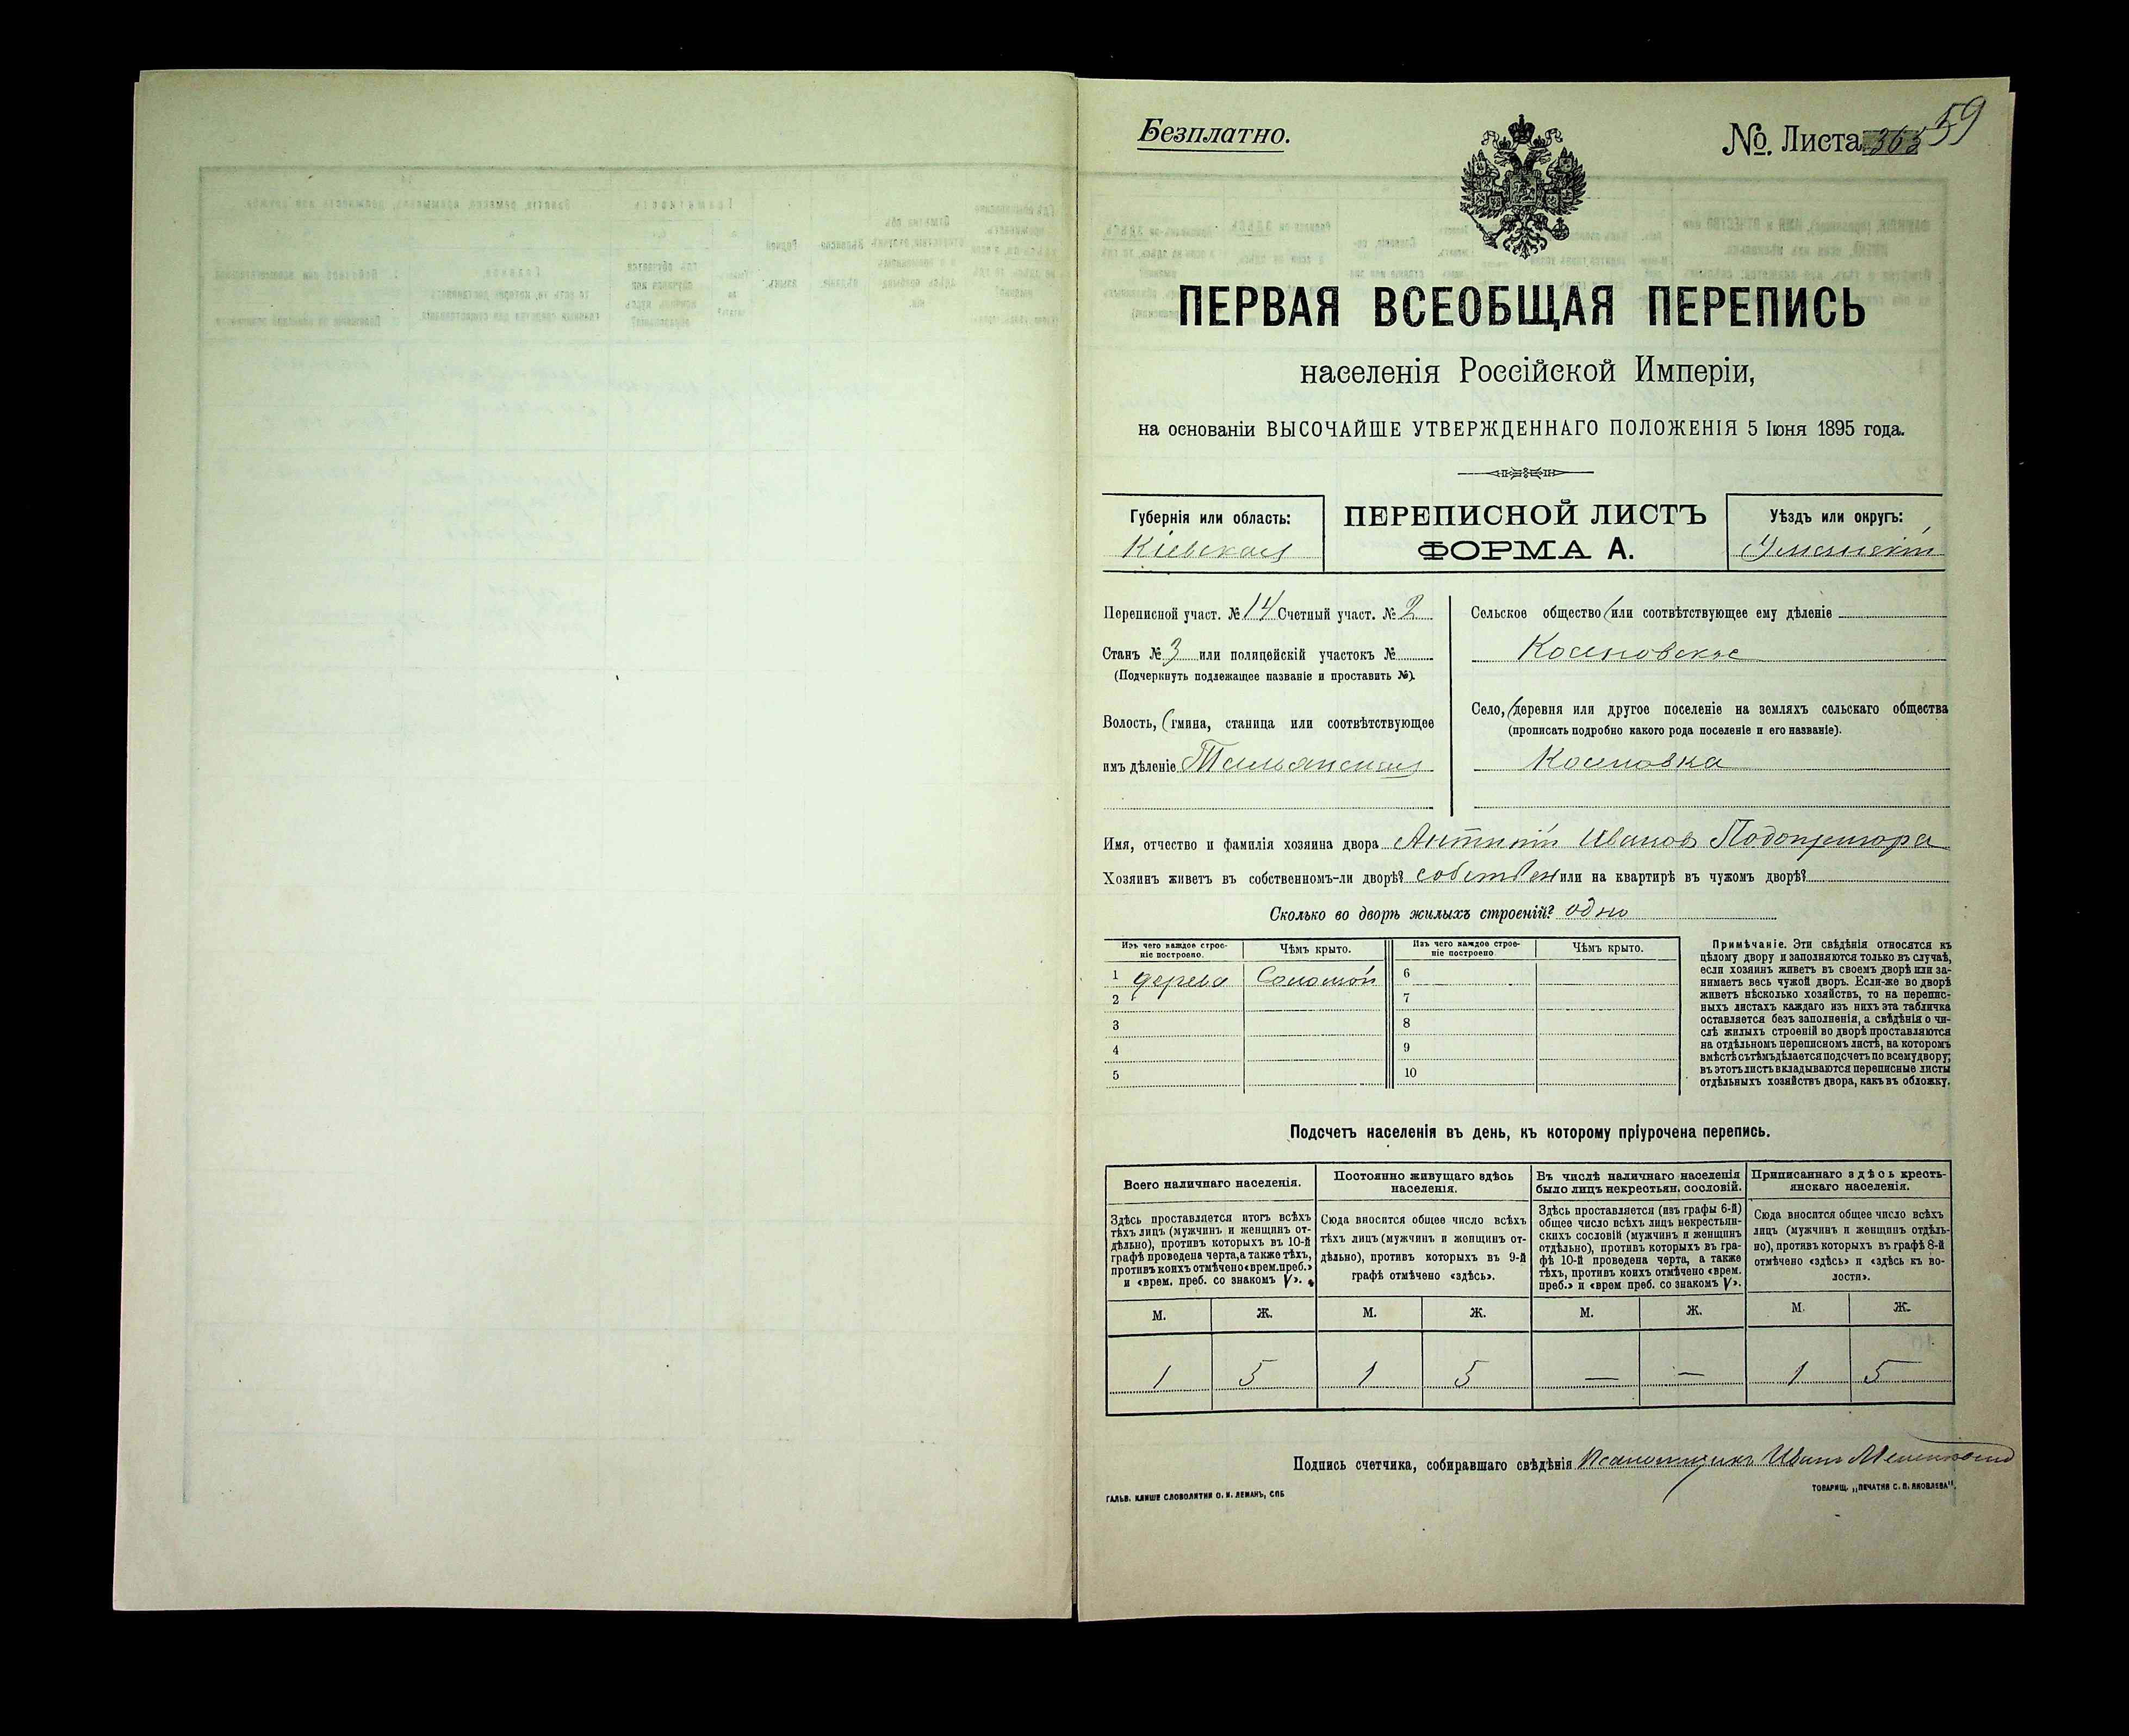 Безплатно.
№. Листа 363 59
ПЕРВАЯ ВСЕОБЩАЯ ПЕРЕПИСЬ
населенія Россійской Имперіи,
на основаніи ВЫСОЧАЙШЕ УТВЕРЖДЕННАГО ПОЛОЖЕНІЯ 5 Іюня 1895 года.
Губернія или область:
Кіевская
ПЕРЕПИСНОЙ ЛИСТЪ
ФОРМА А.
Уѣздъ или округъ:
Уманскій
Переписной участ. № 14 Счетный участ. № 2
Станъ № 3 или полицейскій участокъ №
(Подчеркнуть подлежащее названіе и проставить №).
Волость, (гмина, станица или соотвѣтствующее
имъ дѣленіе Тальянская
Сельское общество (или соотвѣтствующее ему дѣленіе
Косеновское
Село, (деревня или другое поселеніе на земляхъ сельскаго общества
(прописать подробно какого рода поселеніе и его названіе).
Косеновка
Имя, отчество и фамилія хозяина двора Антипій Иванов Подопригора
Хозяинъ живетъ въ собственномъ-ли дворѣ? собствен или на квартирѣ въ чужомъ дворѣ?
Сколько во дворѣ жилыхъ строеній? одно
Изъ чего каждое строе-
ніе построено.
Чѣмъ крыто.
Изъ чего каждое строе-
ніе построено
Чѣмъ крыто.
1 дерева Соломой 6
2 7
3 8
4 9
5 10
Примѣчаніе. Эти свѣдѣнія относятся къ
цѣлому двору и заполняются только въ случаѣ,
если хозяинъ живетъ въ своемъ дворѣ или за-
нимаетъ весь чужой дворъ. Если-же во дворѣ
живетъ нѣсколько хозяйствъ, то на перепис-
ныхъ листахъ каждаго изъ нихъ эта табличка
оставляется безъ заполненія, а свѣдѣнія о чи-
слѣ жилыхъ строеній во дворѣ проставляются
на отдѣльномъ переписномъ листѣ, на которомъ
вмѣстѣ съ тѣмъ дѣлается подсчетъ по всему двору;
въ этотъ листъ вкладываются переписные листы
отдѣльныхъ хозяйствъ двора, какъ въ обложку.
Подсчетъ населенія въ день, къ которому пріурочена перепись.
Всего наличнаго населенія.
Здѣсь проставляется итогъ всѣхъ
тѣхъ лицъ (мужчинъ и женщинъ от-
дѣльно), противъ которыхъ въ 10-й
графѣ проведена черта, а также тѣхъ,
противъ коихъ отмѣчено «врем. преб.»
и «врем. преб. со знакомъ V».
Постоянно живущаго здѣсь
населенія.
Сюда вносится общее число всѣхъ
тѣхъ лицъ (мужчинъ и женщинъ от-
дѣльно), противъ которыхъ въ 9-й
графѣ отмѣчено «здѣсь».
Въ числѣ наличнаго населенія
было лицъ некрестьян. сословій.
Здѣсь проставляется (изъ графы 6-й)
общее число всѣхъ лицъ некрестьян-
скихъ сословій (мужчинъ и женщинъ
отдѣльно), противъ которыхъ въ гра-
фѣ 10-й проведена черта, а также
тѣхъ, противъ коихъ отмѣчено «врем.
преб.» и «врем преб. со знакомъ V».
Приписаннаго здѣсь кресть-
янскаго населенія.
Сюда вносится общее число всѣхъ
лицъ (мужчинъ и женщинъ отдѣль-
но), противъ которыхъ въ графѣ 8-й
отмѣчено «здѣсь» и «здѣсь къ во-
лости».
М. Ж. М. Ж. М. Ж. М. Ж.
1 5 1 5 — — 1 5
Подпись счетчика, собиравшаго свѣдѣнія Псаломщикъ Иванъ
ГАЛЬВ. КЛИШЕ СЛОВОЛИТНИ О. И. ЛЕМАНЪ, СПБ
ТОВАРИЩ. „ПЕЧАТНЯ С. П. ЯКОВЛЕВА".